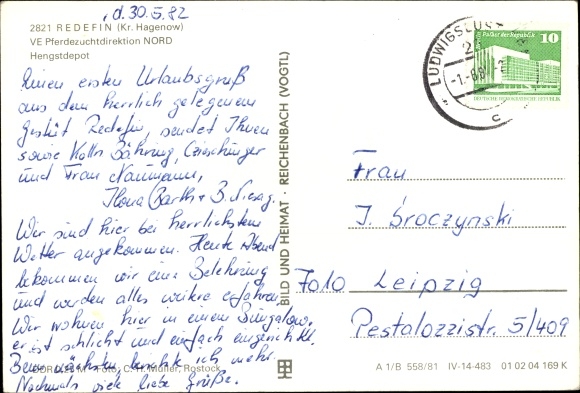 , d. 30.5.82
2821 REDEFIN (Kr. Hagenow)
VE Pferdezuchtdirektion NORD
Hengstdepot
Einen ersten Urlaubsgruß
aus dem herrlich gelegenem
Gestüt Redefin, sendet Ihnen
sowie Kolln Bähring,
und Frau Naumann,
Ilona Barth + B.
Wir sind hier bei herrlichstem
Wetter angekommen. Heute Abend
bekommen wir eine Belehrung
und werden alles weitere erfahren.
Wir wohnen hier in einem Bungalow,
er ist schlicht und einfach eingerichtet.
Beim nächsten berichte ich mehr.
Nochmals viele liebe Grüße.
Foto: C. H. Müller, Rostock
BILD UND HEIMAT · REICHENBACH (VOGTL)
LUDWIGSLUST
-1.-6.8
c
Palast der Republik 10
DEUTSCHE DEMOKRATISCHE REPUBLIK
Frau
I. Sroczynski
7010 Leipzig
Pestalozzistr. 5/409
A 1/B 558/81 IV-14-483 01 02 04 169 K